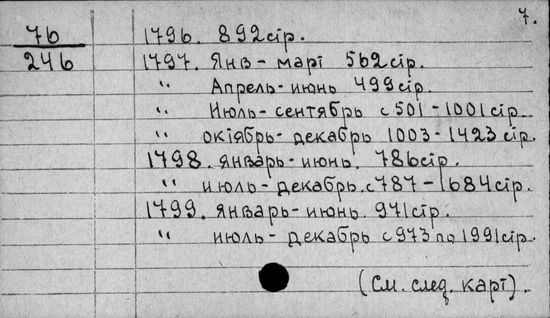 7.
76 1796. 892стр.
246 1797. Янв - март 562стр.
" Апрель - июнь 499стр.
" Июль - сентябрь с 501 - 1001стр.
" октябрь - декабрь 1003 - 1423 стр.
1798. январь - июнь. 786стр.
" июль - декабрь. с 787 - 1684стр.
1799. январь - июнь. 971стр.
" июль - декабрь с 973 по 1991стр.
(См. след. карт).